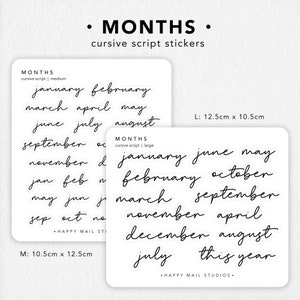 • MONTHS •
cursive script stickers
MONTHS
cursive script | medium
january february
march april may
june july august
september
november
jan feb
may jun
sep oct
•HAPPY MAIL STUDIOS•
M: 10.5cm x 12.5cm
L: 12.5cm x 10.5cm
MONTHS
cursive script | large
january june may
february october
march september
november april
december august
july this year
•HAPPY MAIL STUDIOS•